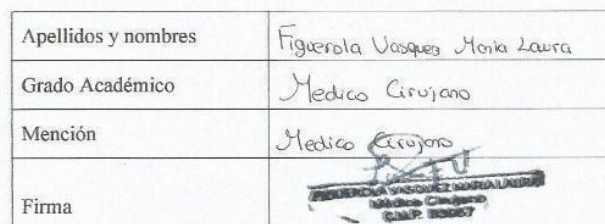 Apellidos y nombres Figuerola Vasquez Maria Laura
Grado Académico Medico Cirujano
Mención Medico Cirujano
Firma
FIGUEROLA VASQUEZ MARIA LAURA
Médico Cirujano
C.M.P.